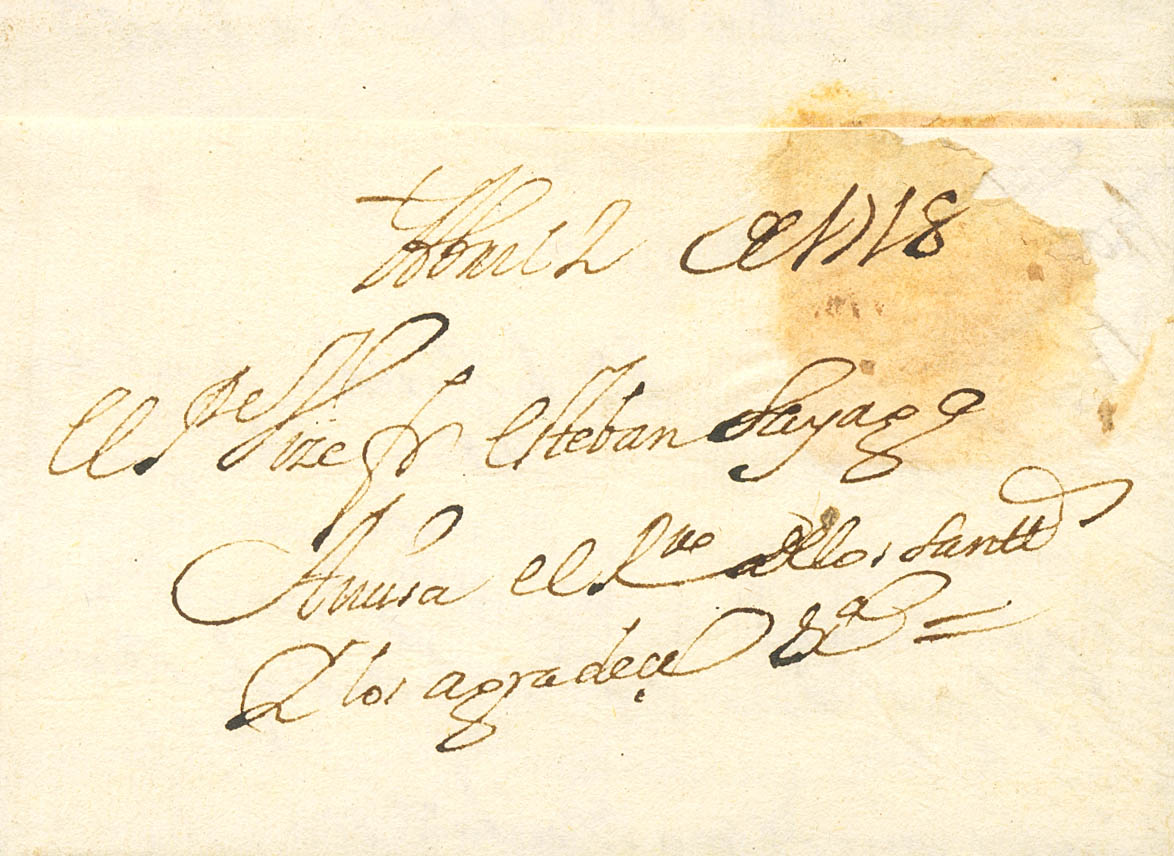 Abril 2 de 1718
El Pe Vize fr esteban sayago
Avisa el Rvo de los santtos
Y los agradeçe &a =